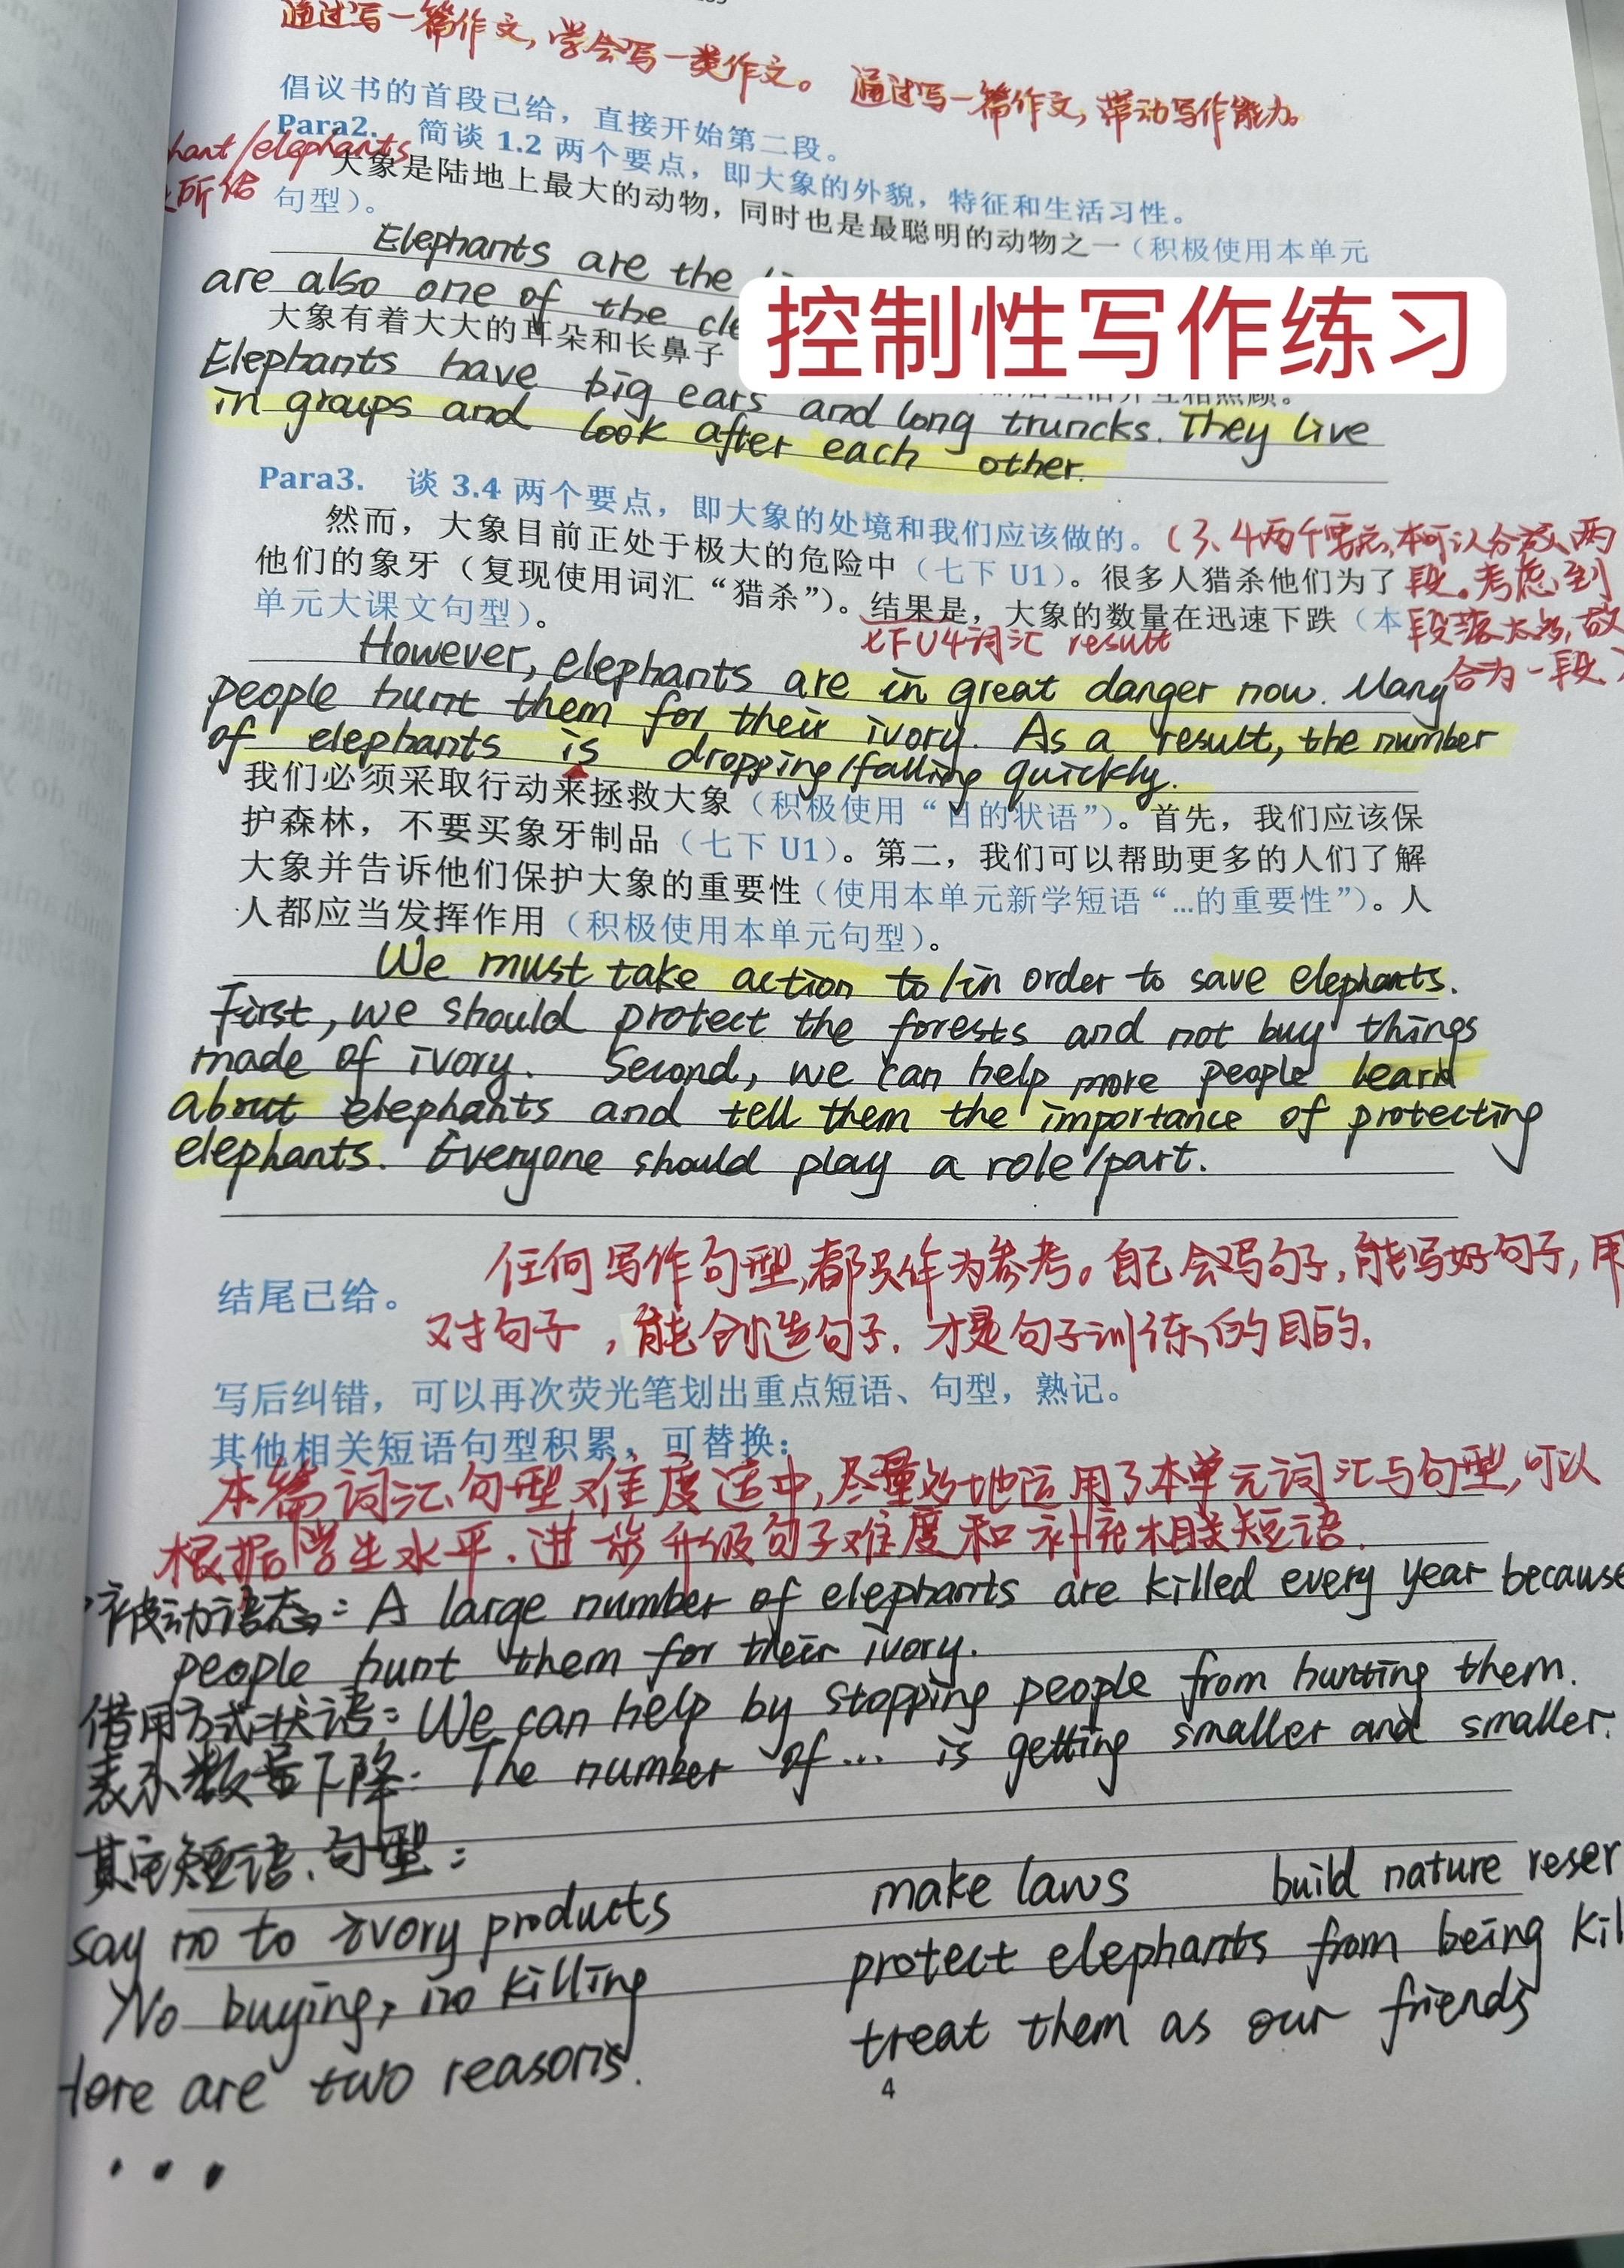 通过写一篇作文,学会写一类作文。 通过写一篇作文,带动写作能力。
倡议书的首段已给，直接开始第二段。
Para2. 简谈 1.2 两个要点，即大象的外貌，特征和生活习性。
hant/elephants
所给
大象是陆地上最大的动物，同时也是最聪明的动物之一（积极使用本单元
句型）。
Elephants are the
are also one of the cle
大象有着大大的耳朵和长鼻子
控制性写作练习
Elephants have big ears and long truncks. They live
in groups and look after each other.
Para3. 谈 3.4 两个要点，即大象的处境和我们应该做的。
(3、4两个要点,本可以分成两
段。考虑到
段落太多,故
合为一段
然而，大象目前正处于极大的危险中（七下 U1）。很多人猎杀他们为了
他们的象牙（复现使用词汇“猎杀”）。结果是，大象的数量在迅速下跌（本
单元大课文句型）。
七下U4词汇 result
However, elephants are in great danger now. Many
people hunt them for their ivory. As a result, the number
of elephants is dropping/falling quickly.
我们必须采取行动来拯救大象（积极使用“目的状语”）。首先，我们应该保
护森林，不要买象牙制品（七下 U1）。第二，我们可以帮助更多的人们了解
大象并告诉他们保护大象的重要性（使用本单元新学短语“...的重要性”）。人
人都应当发挥作用（积极使用本单元句型）。
We must take action to/in order to save elephants.
First, we should protect the forests and not buy things
made of ivory. Second, we can help more people learn
about elephants and tell them the importance of protecting
elephants. Everyone should play a role/part.
任何写作句型,都只作为参考。自己会写句子,能写好句子,用
结尾已给。
对句子,能创造句子.才是句子训练的目的.
写后纠错，可以再次荧光笔划出重点短语、句型，熟记。
其他相关短语句型积累，可替换：
本篇词汇、句型难度适中,尽量多地运用了本单元词汇与句型,可以
根据学生水平.进一步升级句子难度和补充相关短语.
被动语态: A large number of elephants are killed every year because
people hunt them for their ivory.
借用方式状语: We can help by stopping people from hunting them.
表示数量下降: The number of ... is getting smaller and smaller.
其它短语、句型:
make laws build nature reser
say no to ivory products
protect elephants from being kil
No buying, no killing
treat them as our friends
Here are two reasons.
4
...